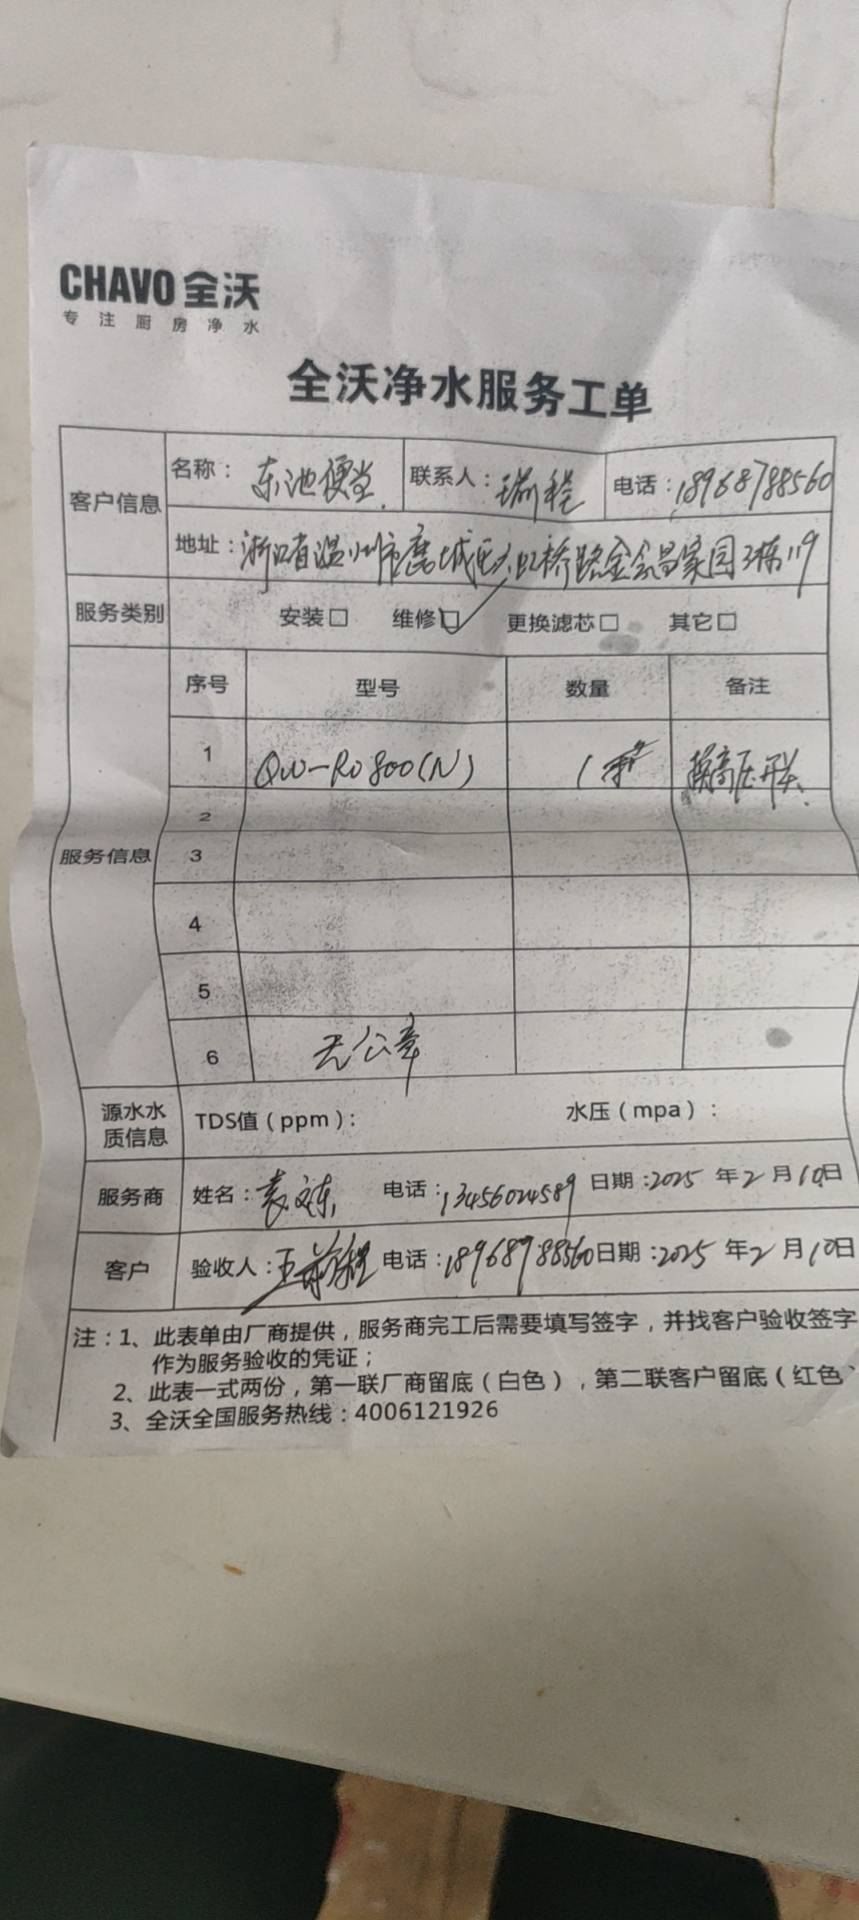 CHAVO 全沃
专注厨房净水
全沃净水服务工单
客户信息 名称：东池便当 联系人：王前程 电话：18968788560
地址：浙江省温州市鹿城区大虹桥路金会昌家园3栋119
服务类别 安装□ 维修☑ 更换滤芯□ 其它□
服务信息 序号 型号 数量 备注
1 QW-RO800(N) 1 换高压开关
2
3
4
5
6 无公章
源水水质信息 TDS值（ppm）： 水压（mpa）：
服务商 姓名：袁文东 电话：13456024589 日期：2025年2月10日
客户 验收人：王前程 电话：18968788560 日期：2025年2月10日
注：1、此表单由厂商提供，服务商完工后需要填写签字，并找客户验收签字
作为服务验收的凭证；
2、此表一式两份，第一联厂商留底（白色），第二联客户留底（红色）
3、全沃全国服务热线：4006121926